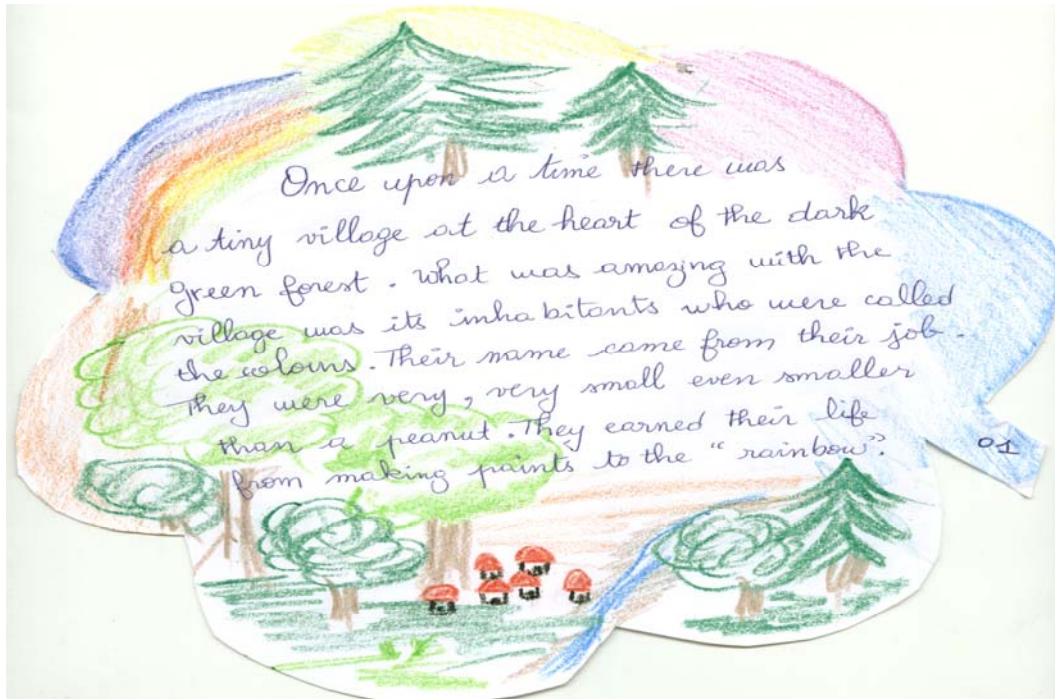 Once upon a time there was
a tiny village at the heart of the dark
green forest. What was amazing with the
village was its inhabitants who were called
the colours. Their name came from their job.
They were very, very small even smaller
than a peanut. They earned their life
from making paints to the "rainbow".
01